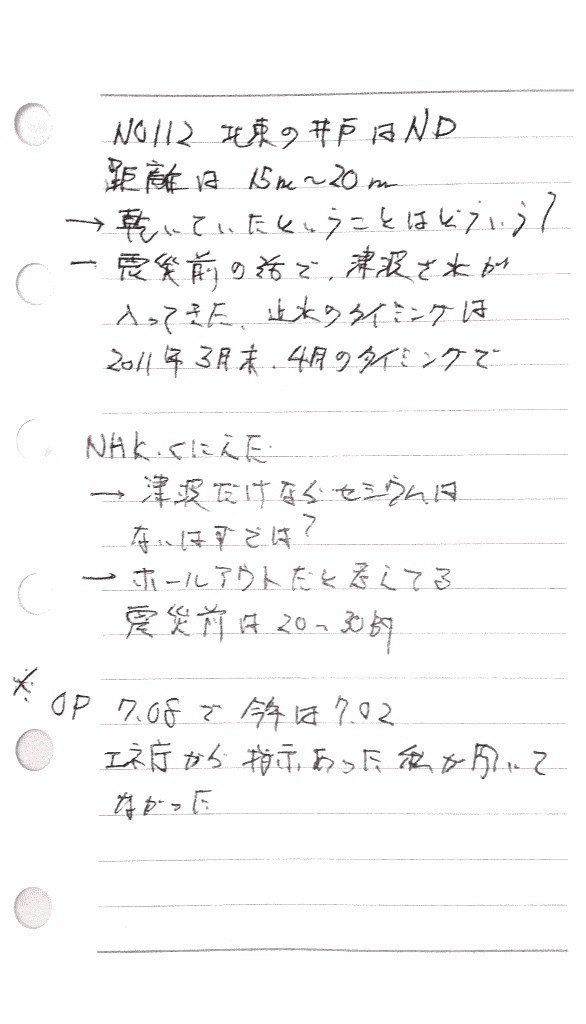 NO112 北東の井戸はND
距離は 15m〜20m
→ 乾いていたということはどういう?
ー 震災前の話で、津波され水が
入ってきた、止水のタイミングは
2011年3月末、4月のタイミングで
NHK、くにえだ
→ 津波だけならセシウムは
ないはずでは?
→ ホールアウトだと考えてる
震災前は20〜30Bq
※ OP 7.08で 今年は7.02
エネ庁から指示あった 私が聞いて
なかった